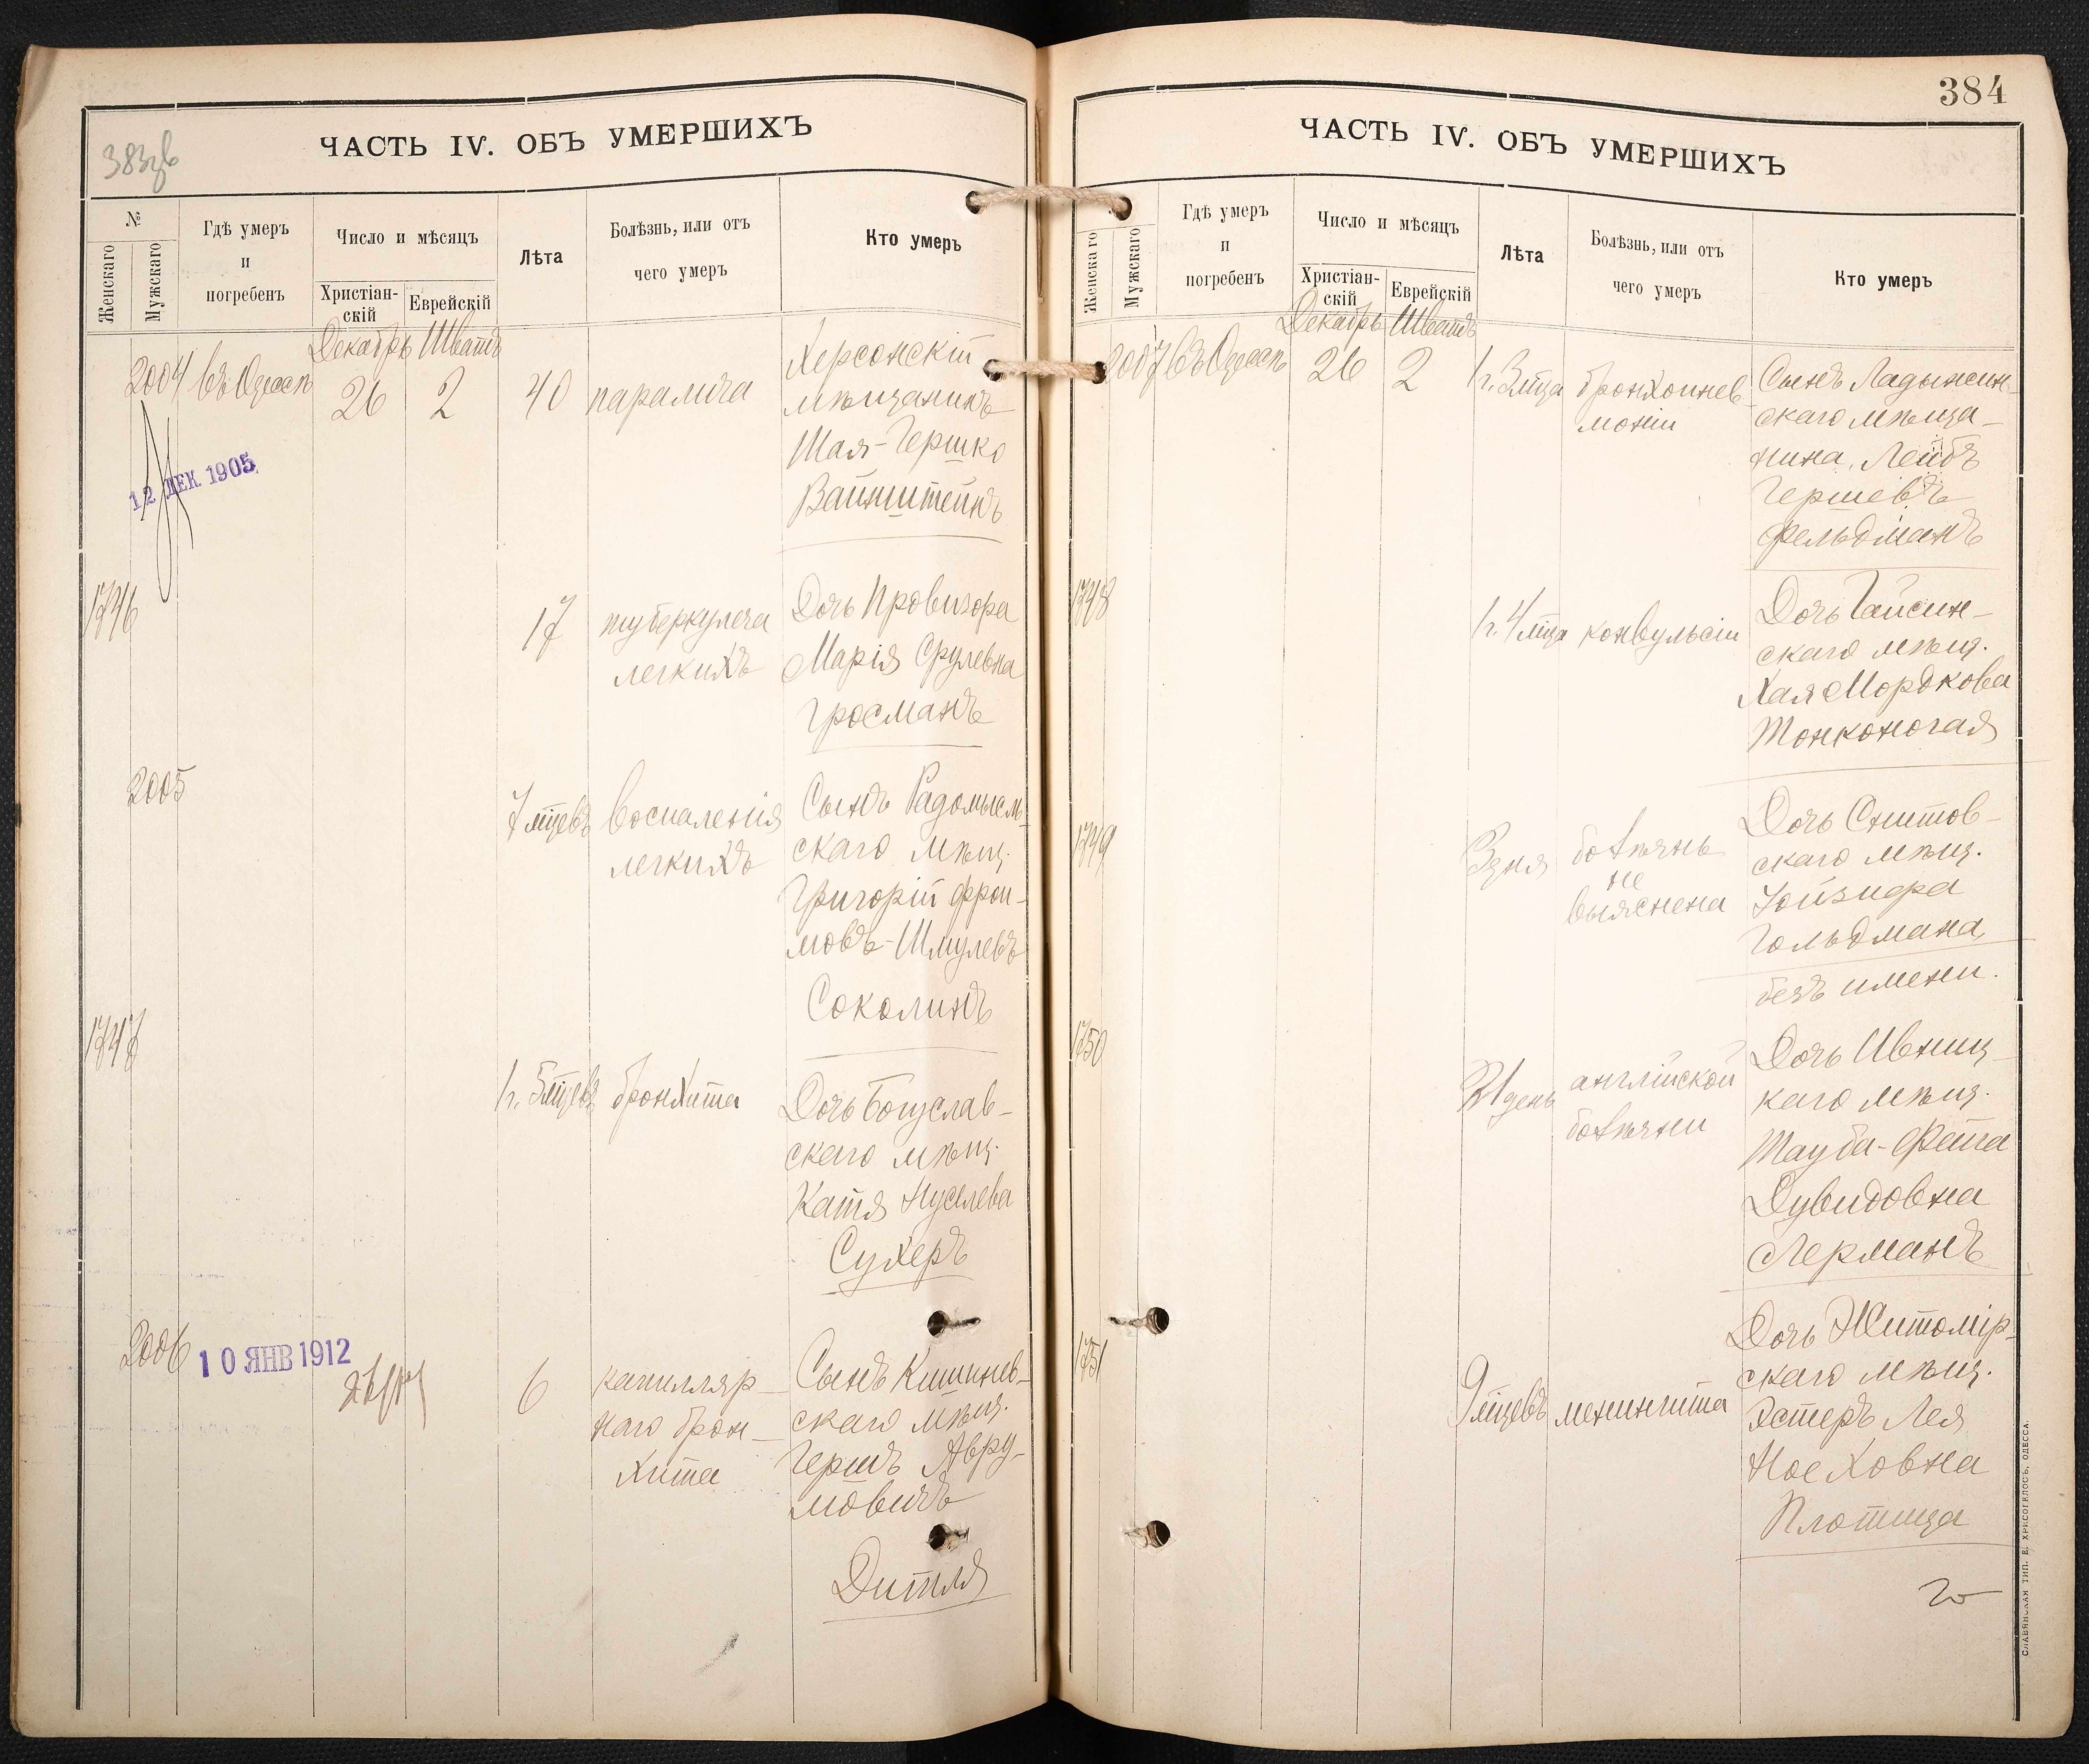 383 зв
ЧАСТЬ IV. ОБЪ УМЕРШИХЪ
№
Женскаго
Мужскаго
Гдѣ умеръ
и
погребенъ
Число и мѣсяцъ
Христіан-
скій
Еврейскій
Лѣта
Болѣзнь, или отъ
чего умеръ
Кто умеръ
Декабрь Шватъ
2004 въ Одессѣ 26 2 40 паралича
Херсонскій
мѣщанинъ
Шая-Гершко
Вайнштейнъ
12 ДЕК 1905
1746 17 туберкулеза
легкихъ
Дочь Провизора
Марія Срулевна
Гросманъ
2005 7 мцевъ воспаленія
легкихъ
Сынъ Радомысль-
скаго мѣщ.
Григорій Фрои-
мовъ-Шмулевъ
Соколинъ
1747 1 г. 5 мцевъ бронхита
Дочь Богуслав-
скаго мѣщ.
Катя Нуселева
Сухеръ
2006 10 ЯНВ 1912 6 капилляр-
наго брон-
хита
Сынъ Кишинев-
скаго мѣщ.
Гершъ Авру-
мовичъ
Дитля
384
ЧАСТЬ IV. ОБЪ УМЕРШИХЪ
Женскаго
Мужскаго
Гдѣ умеръ
и
погребенъ
Число и мѣсяцъ
Христіан-
скій
Еврейскій
Лѣта
Болѣзнь, или отъ
чего умеръ
Кто умеръ
Декабрь Шватъ
2007 въ Одессѣ 26 2 1 г. 3 мца бронхопнев-
моніи
Сынъ Ладыжин-
скаго мѣща-
нина, Лейбъ
Гершевъ
Фельдманъ
1748 1 г. 4 мца конвульсіи
Дочь Гайсин-
скаго мѣщ.
Хая Мордкова
Тонконогая
1749 3 дня болѣзнь
не
выяснена
Дочь Снитов-
скаго мѣщ.
Гольдмана
безъ имени.
1750 21 день англійской
болѣзни
Дочь Ивниц-
каго мѣщ.
Тауба-Фейга
Дувидовна
Лерманъ
1751 9 мцевъ менингита
Дочь Житомір-
скаго мѣщ.
Эстеръ Лея
Ноеховна
Плотица
СЛАВЯНСКАЯ ТИП. Е. ХРИСОГЕЛОСЪ, ОДЕССА.